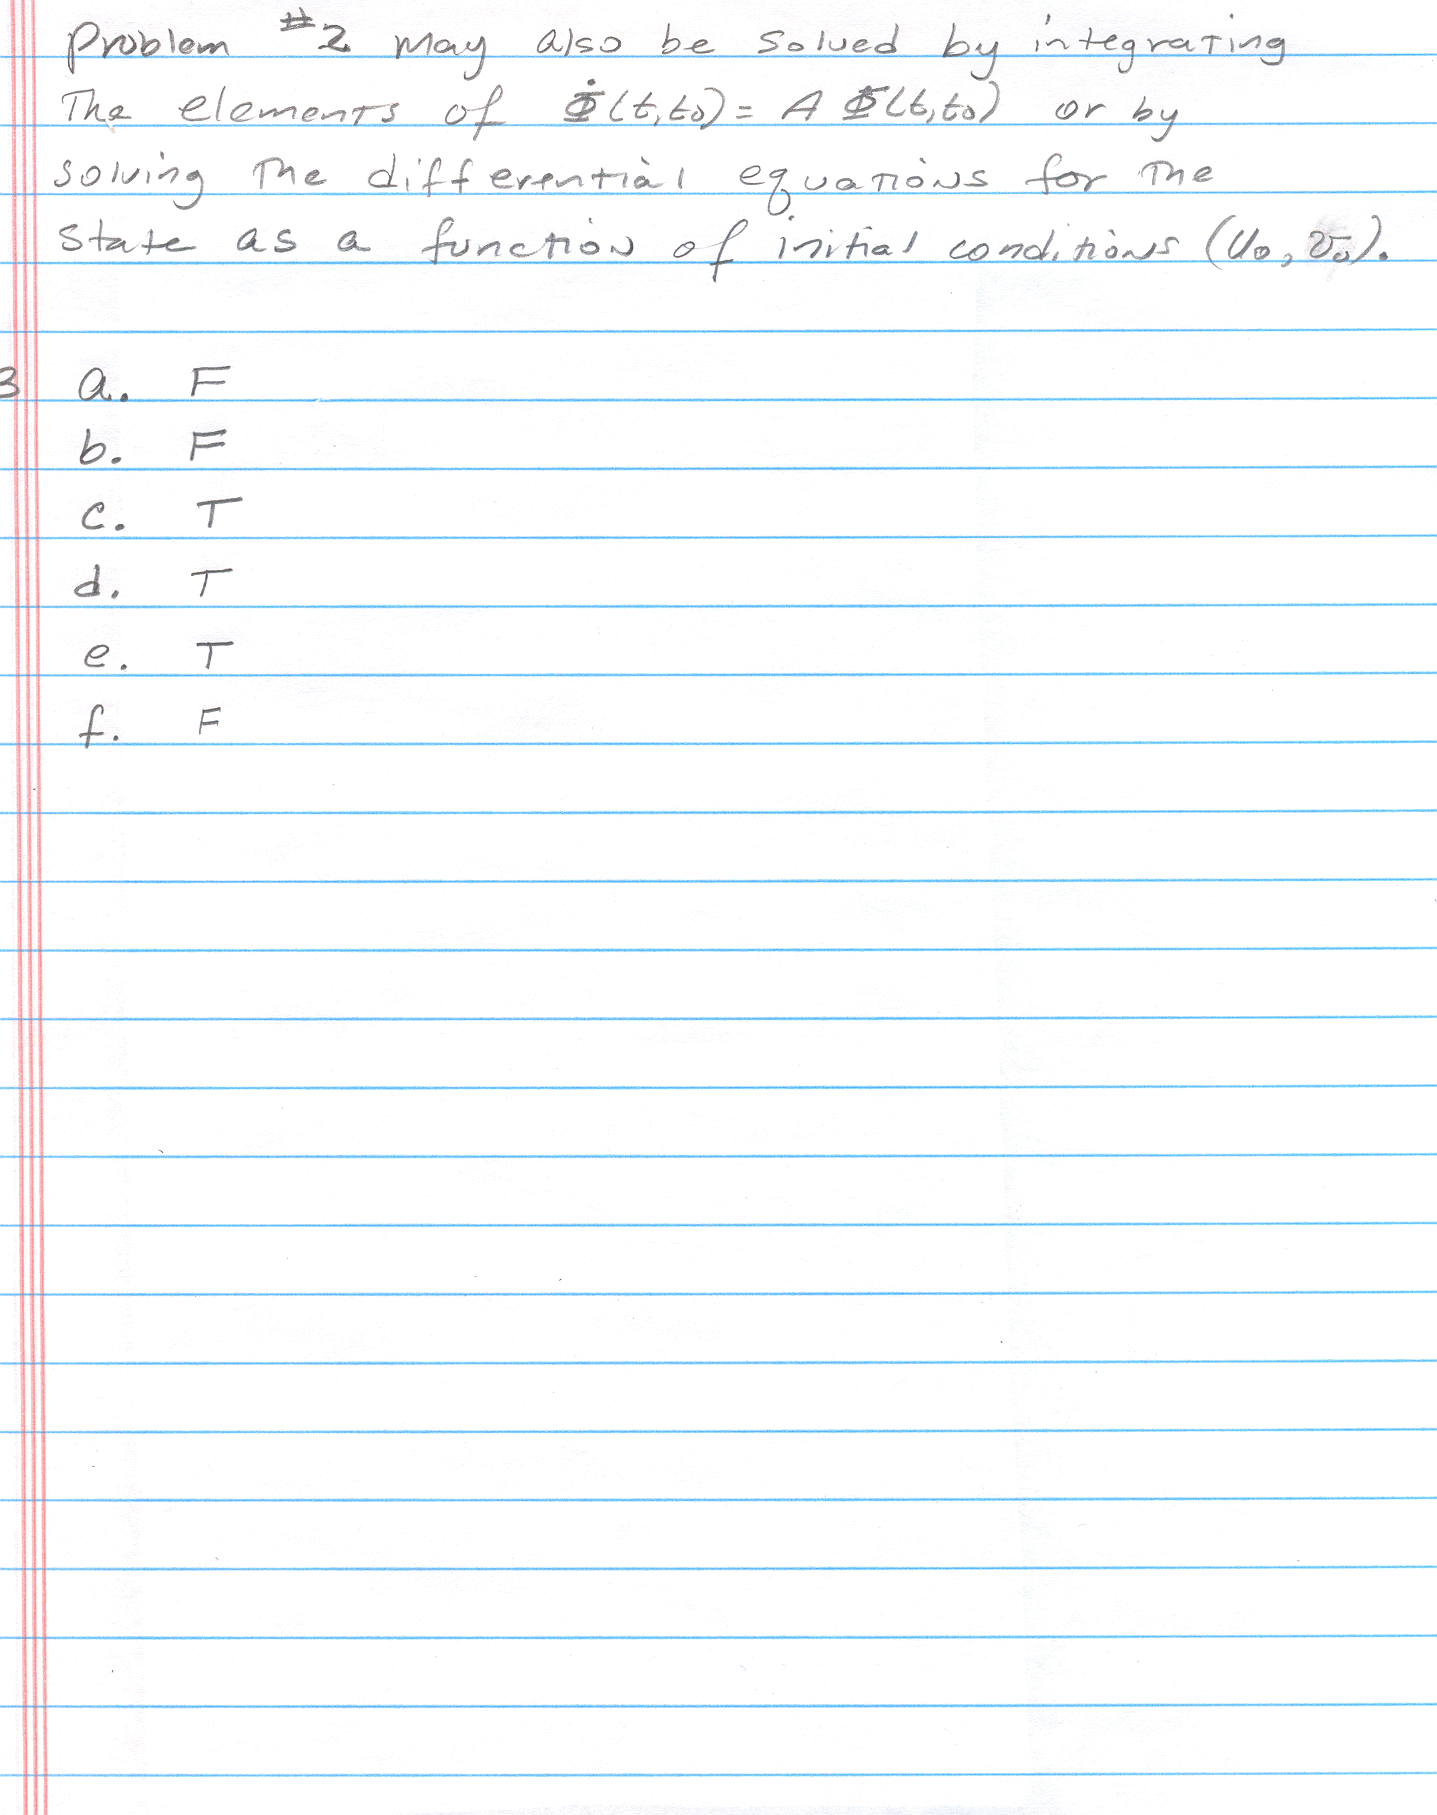 Problem #2 may also be solved by integrating
The elements of Φ̇(t,t₀) = A Φ(t,t₀) or by
solving The differential equations for The
state as a function of initial conditions (u₀, v₀).
3 a. F
b. F
c. T
d. T
e. T
f. F